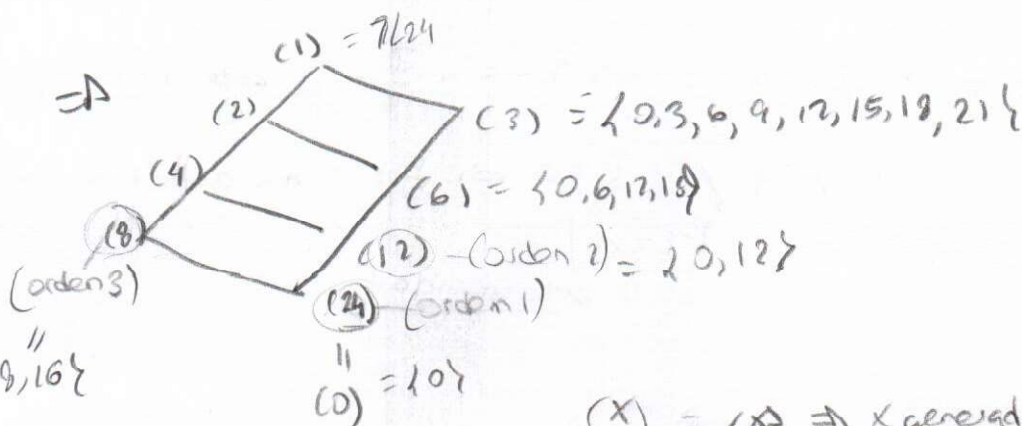 (1) = ℤ24
=>
(2)
(3) = {0,3,6,9,12,15,18,21}
(4)
(6) = {0,6,12,18}
(8)
(12) - (orden 2) = {0,12}
(orden 3)
(24) - (orden 1)
"
8,16}
"
(0) = {0}
(x) = => x generad